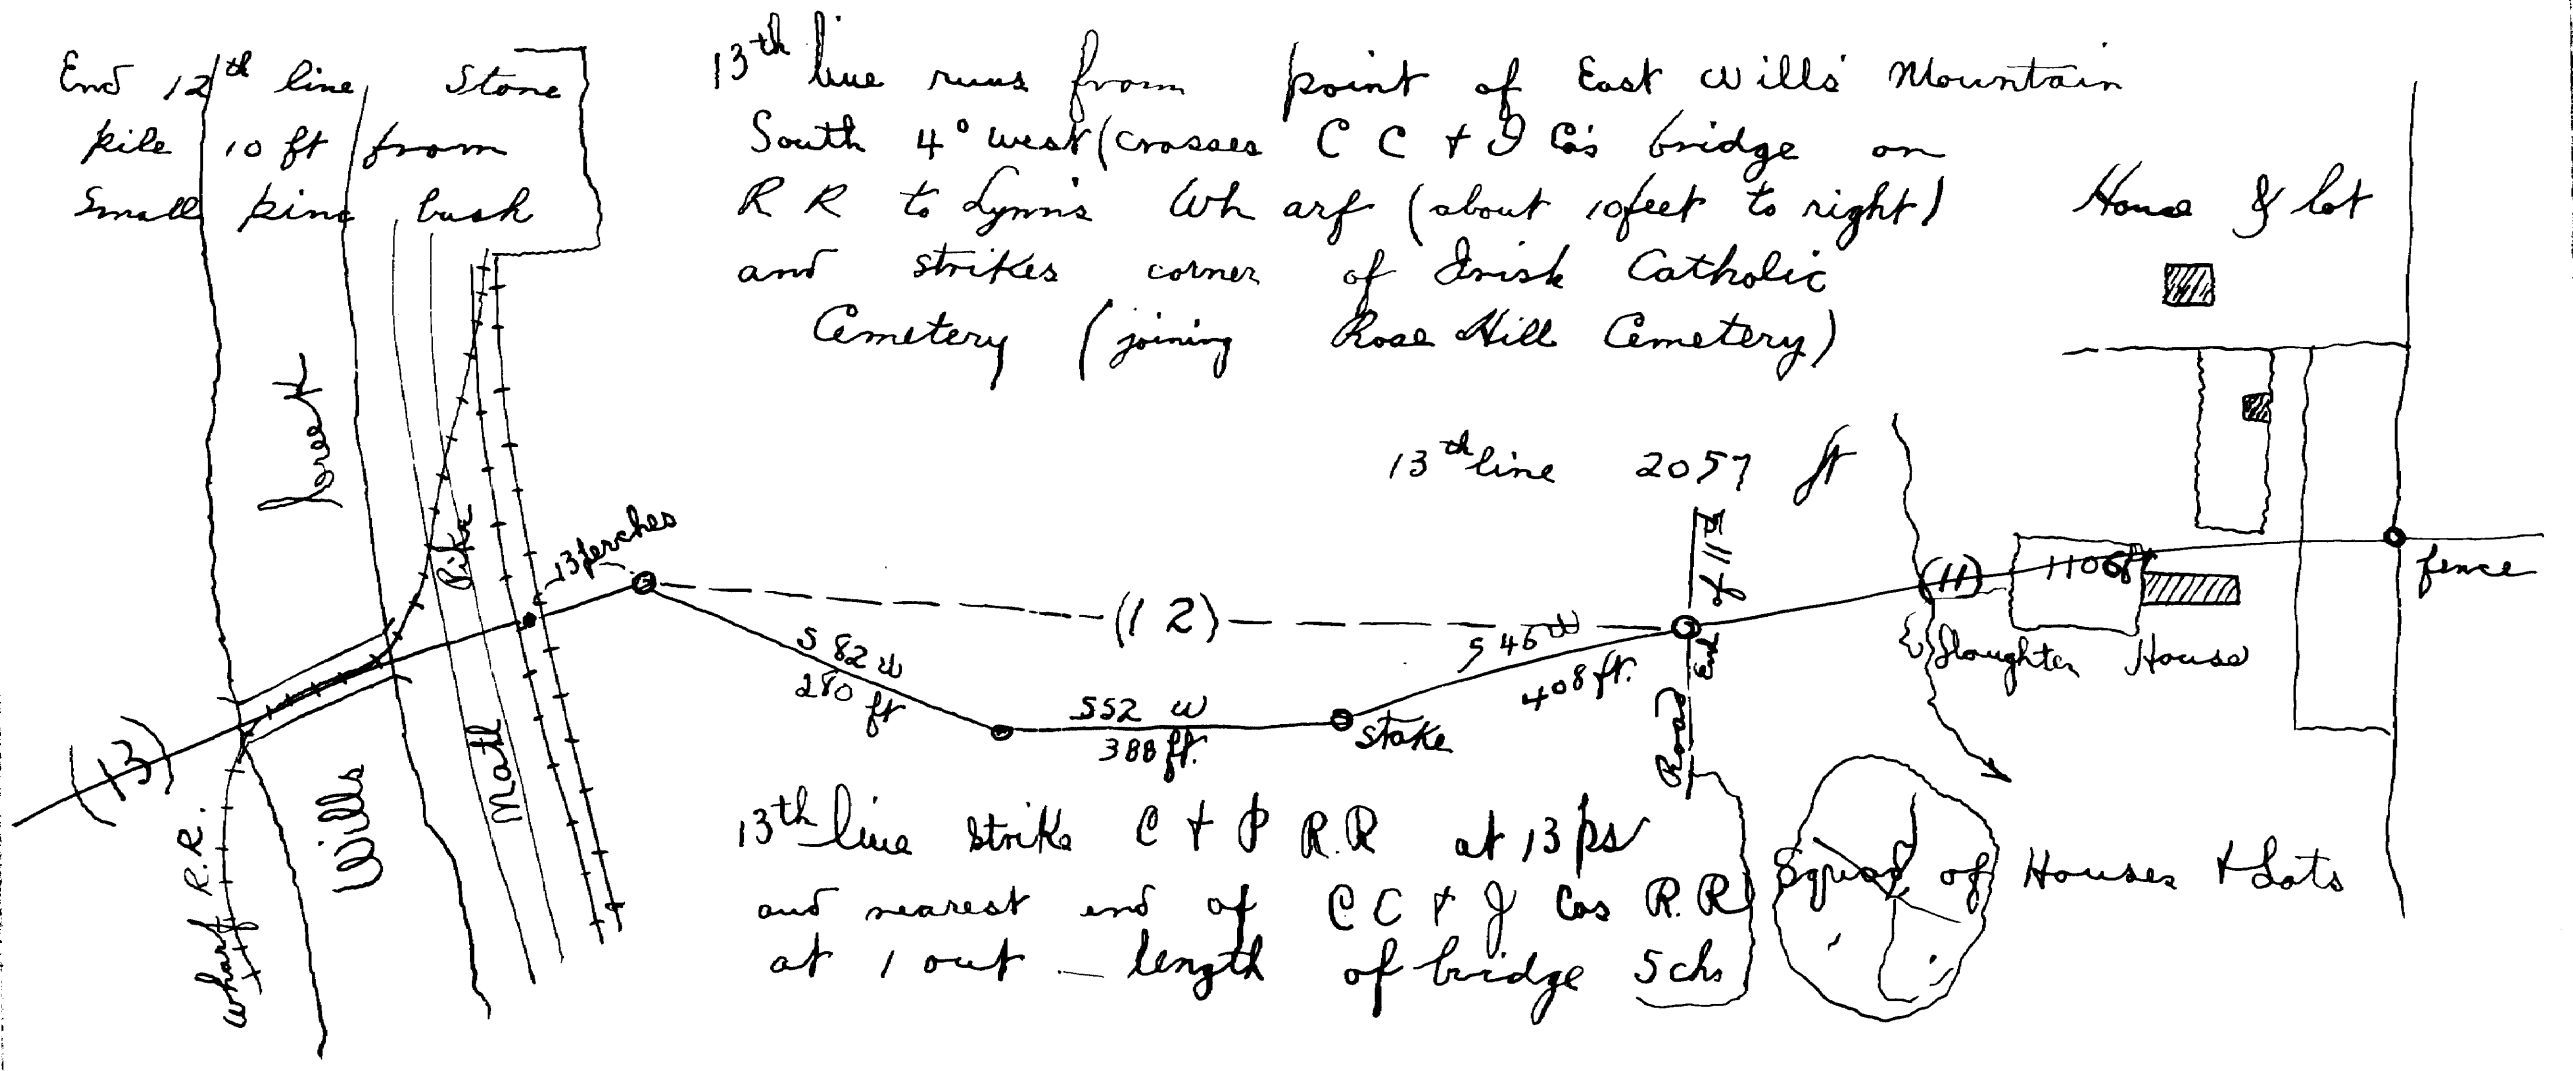 End 12th line Stone
pile 10 ft from
Small pine bush
13th line runs from point of East Wills' Mountain
South 4° west (crosses C C & I Co's bridge on
R R to Lynn's Wharf (about 10 feet to right)
and strikes corner of Irish Catholic
Cemetery (joining Rose Hill Cemetery)
House & lot
13th line 2057 ft
Creek
Pike
13 perches
(12)
S 82 W
280 ft
S 52 W
388 ft.
Stake
S 46 W
408 ft.
End of 11th
Road
(11)
1106 ft
fence
Slaughter House
(13)
Wharf R.R.
Wills
Natl
13th line strike C & P R.R at 13 ps
and nearest end of C C & I Cos R.R
at 1 out _ length of bridge 5 chs
Squad of Houses & Lots